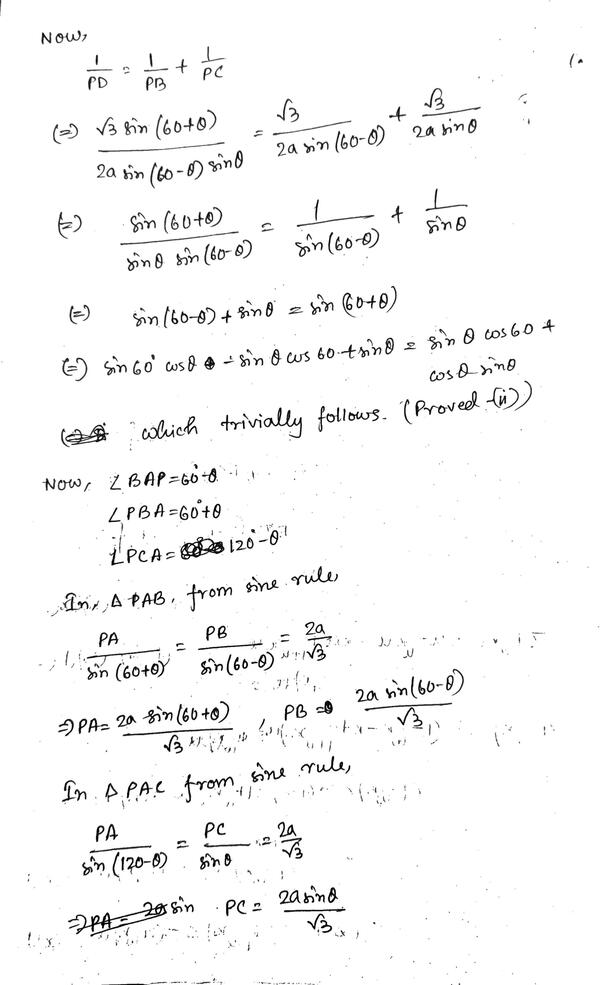 Now,
1/PD = 1/PB + 1/PC
(=) √3 sin (60+θ) / 2a sin (60-θ) sinθ = √3 / 2a sin (60-θ) + √3 / 2a sinθ
(=) sin (60+θ) / sinθ sin (60-θ) = 1 / sin (60-θ) + 1 / sinθ
(=) sin (60-θ) + sinθ = sin (60+θ)
(=) sin 60° cosθ - sinθ cos 60 + sinθ = sin θ cos 60 +
cosθ sinθ
which trivially follows. (Proved (ii))
Now, ∠BAP = 60°-θ
∠PBA = 60°+θ
∠PCA = 120°-θ
In, Δ PAB, from sine rule,
PA / sin (60+θ) = PB / sin (60-θ) = 2a / √3
⇒ PA = 2a sin (60+θ) / √3 , PB = 2a sin (60-θ) / √3
In Δ PAC from sine rule,
PA / sin (120-θ) = PC / sinθ = 2a / √3
⇒ PA = 2a sin PC = 2a sinθ / √3